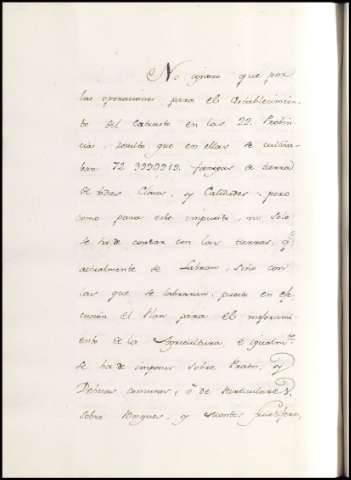 No ignoro que por
las operaciones para el establecimien-
to del Catastro en las 22. Probin-
cias, resulto que en ellas se cultiva-
ban fanegas de tierra
de todas Clases, y Calidades: pero
como para este impuesto, no solo
se ha de contar con las tierras, q.e
actualmente se Labran, sino con
las que se labraran, puesto en ege-
cucion el Plan para el mejorami-
ento de la Agricultura, e igualm.te
se ha de imponer sobre Prados, y
Dehesas comunes, ó de Particulares,
sobre Bosques, y Montes fructiferos,